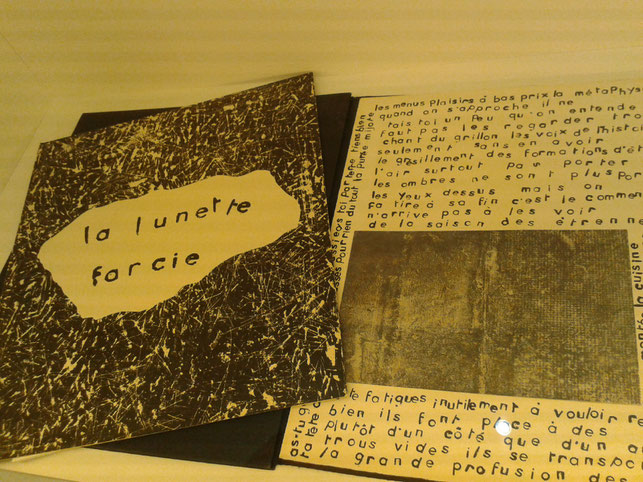 la lunette
farcie
les menus plaisirs à bas prix la métaphys
quand on s'approche il ne
tais toi un peu qu'on entende
faut pas les regarder tro
chant du grillon les voix de l'histo
seulement sans en avoir
le grésillement des formations d'ét
l'air surtout pour porter
les ombres ne sont plus por
les yeux dessus mais on
ça tire à sa fin c'est le comme
n'arrive pas à les voir
de la saison des étrenne
assieds toi par terre tiens bien
pour rien du tout la purée mijote
la cuisine
te fatigues inutilement à vouloir re
bien ils font place à des
plutôt d'un côté que d'un a
trous vides ils se transpo
la grande profusion des
as-tu
ta tête